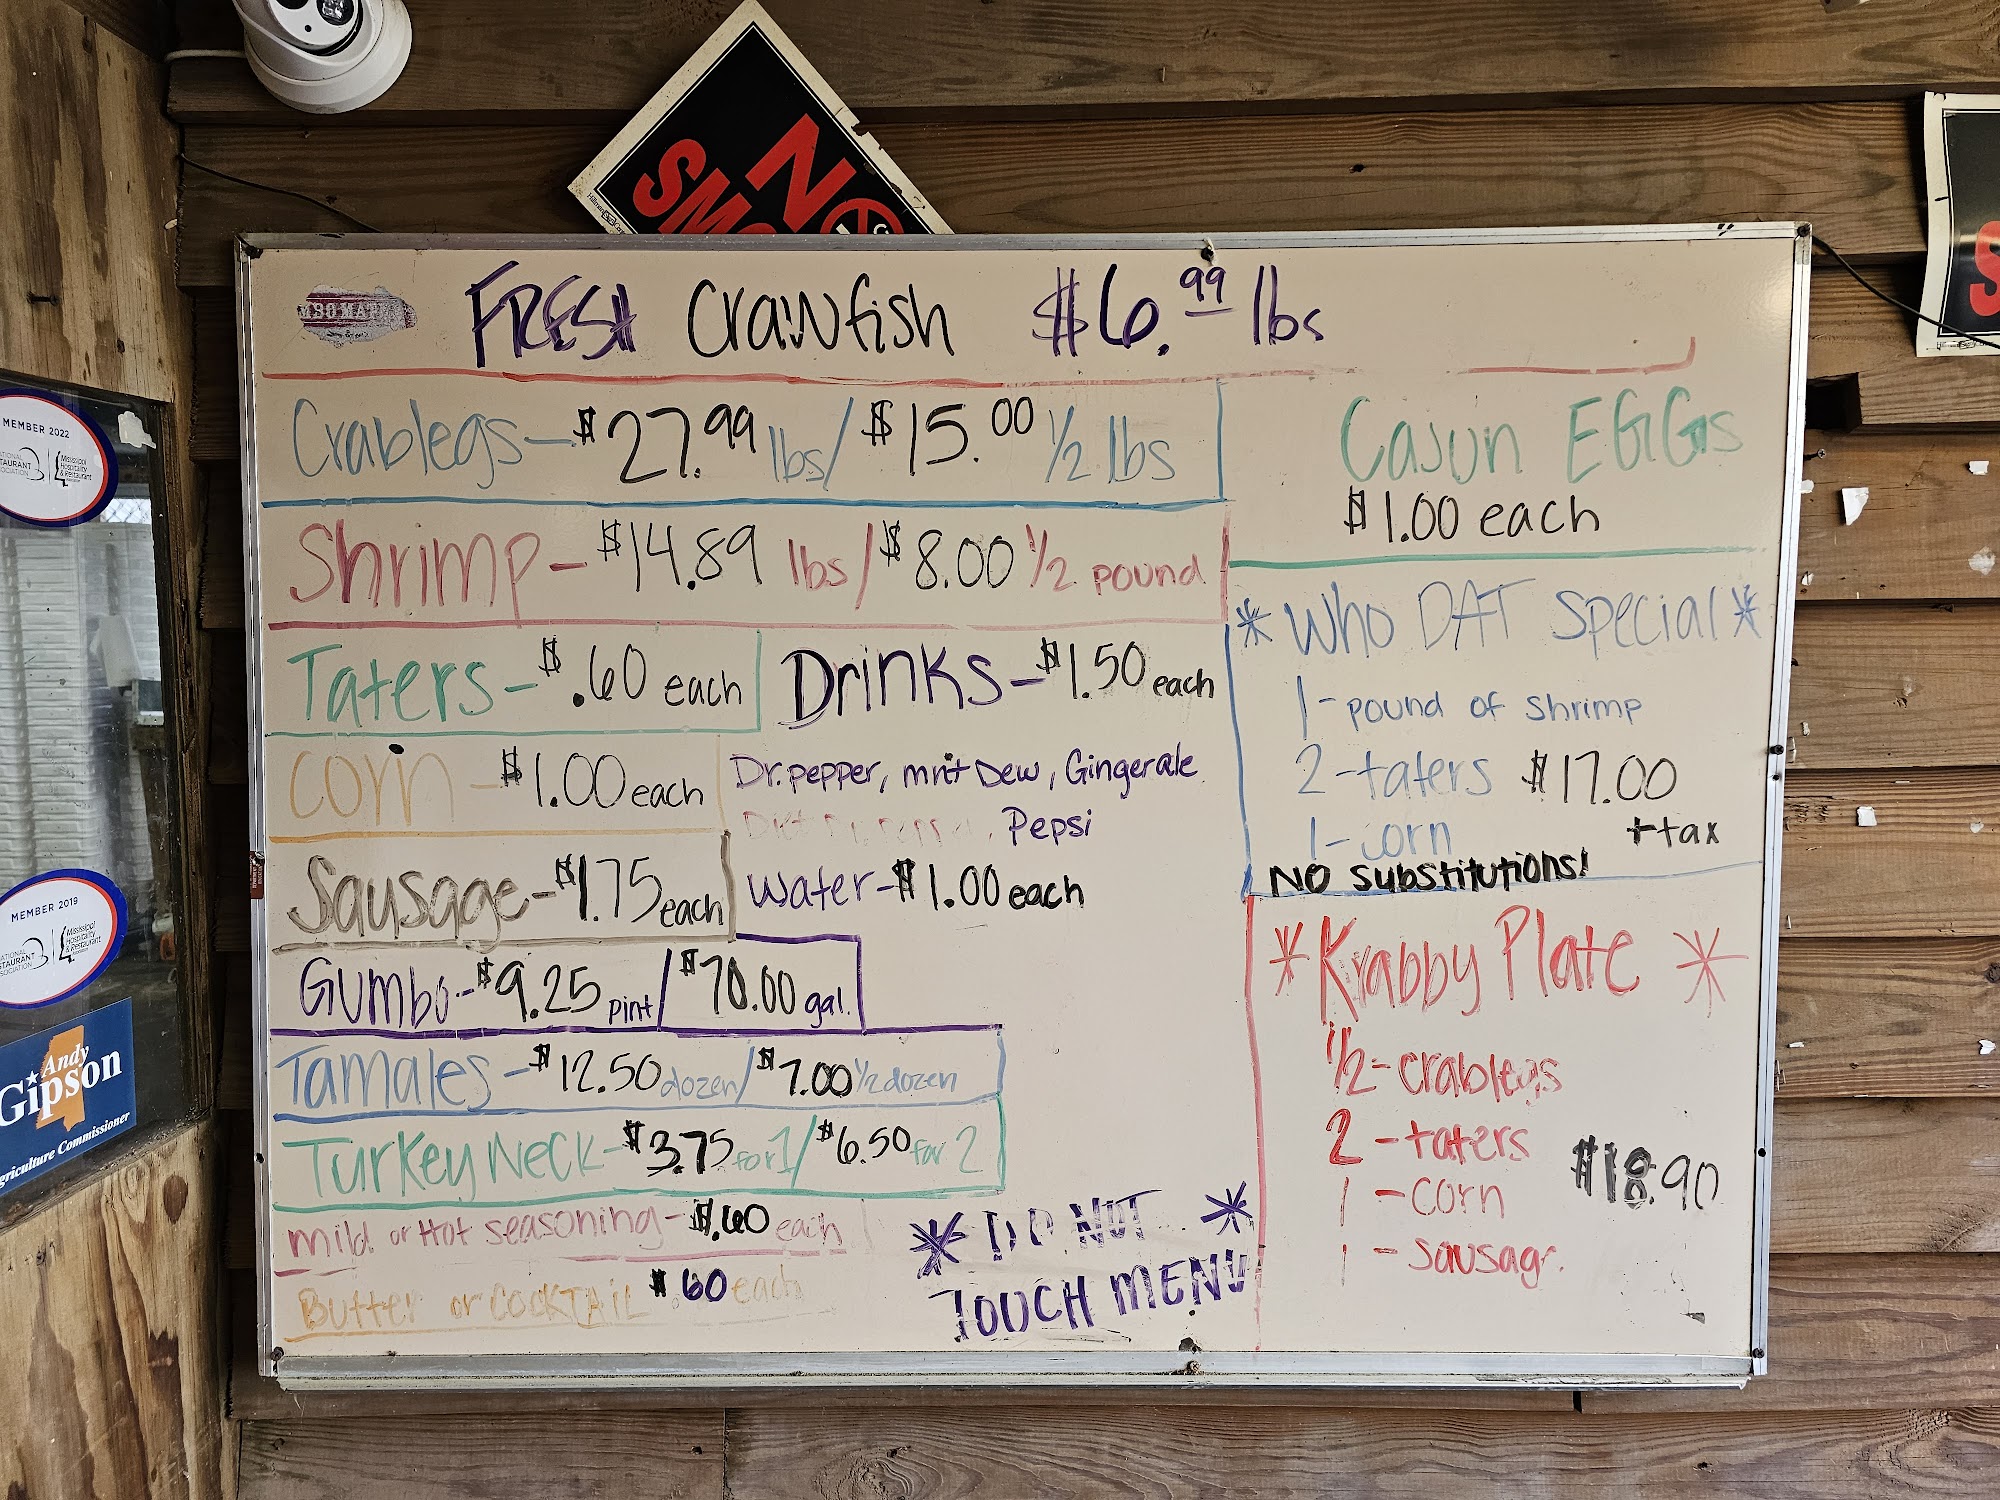 NO
SM
FRESH Crawfish $6.99 lbs
Crablegs - $27.99 lbs / $15.00 1/2 lbs
Shrimp - $14.89 lbs / $8.00 1/2 pound
Taters - $.60 each
Drinks - $1.50 each
Corn - $1.00 each
Dr. pepper, mnt Dew, Gingerale
Pepsi
Sausage - $1.75 each
Water - $1.00 each
Gumbo - $9.25 pint / $70.00 gal.
Tamales - $12.50 dozen / $7.00 1/2 dozen
Turkey Neck - $3.75 for 1 / $6.50 for 2
mild or Hot seasoning - $.60 each
Butter or COCKTAIL $.60 each
* DO NOT *
TOUCH MENU
Cajun EGGs
$1.00 each
* Who DAT Special *
1 - pound of shrimp
2 - taters $17.00
1 - corn + tax
NO Substitutions!
* Krabby Plate *
1/2 - crablegs
2 - taters
$18.90
1 - corn
1 - sausag.
S
MEMBER 2022
Mississippi
Hospitality
& Restaurant
MEMBER 2019
Mississippi
Hospitality
& Restaurant
Andy
Gipson
griculture Commissioner